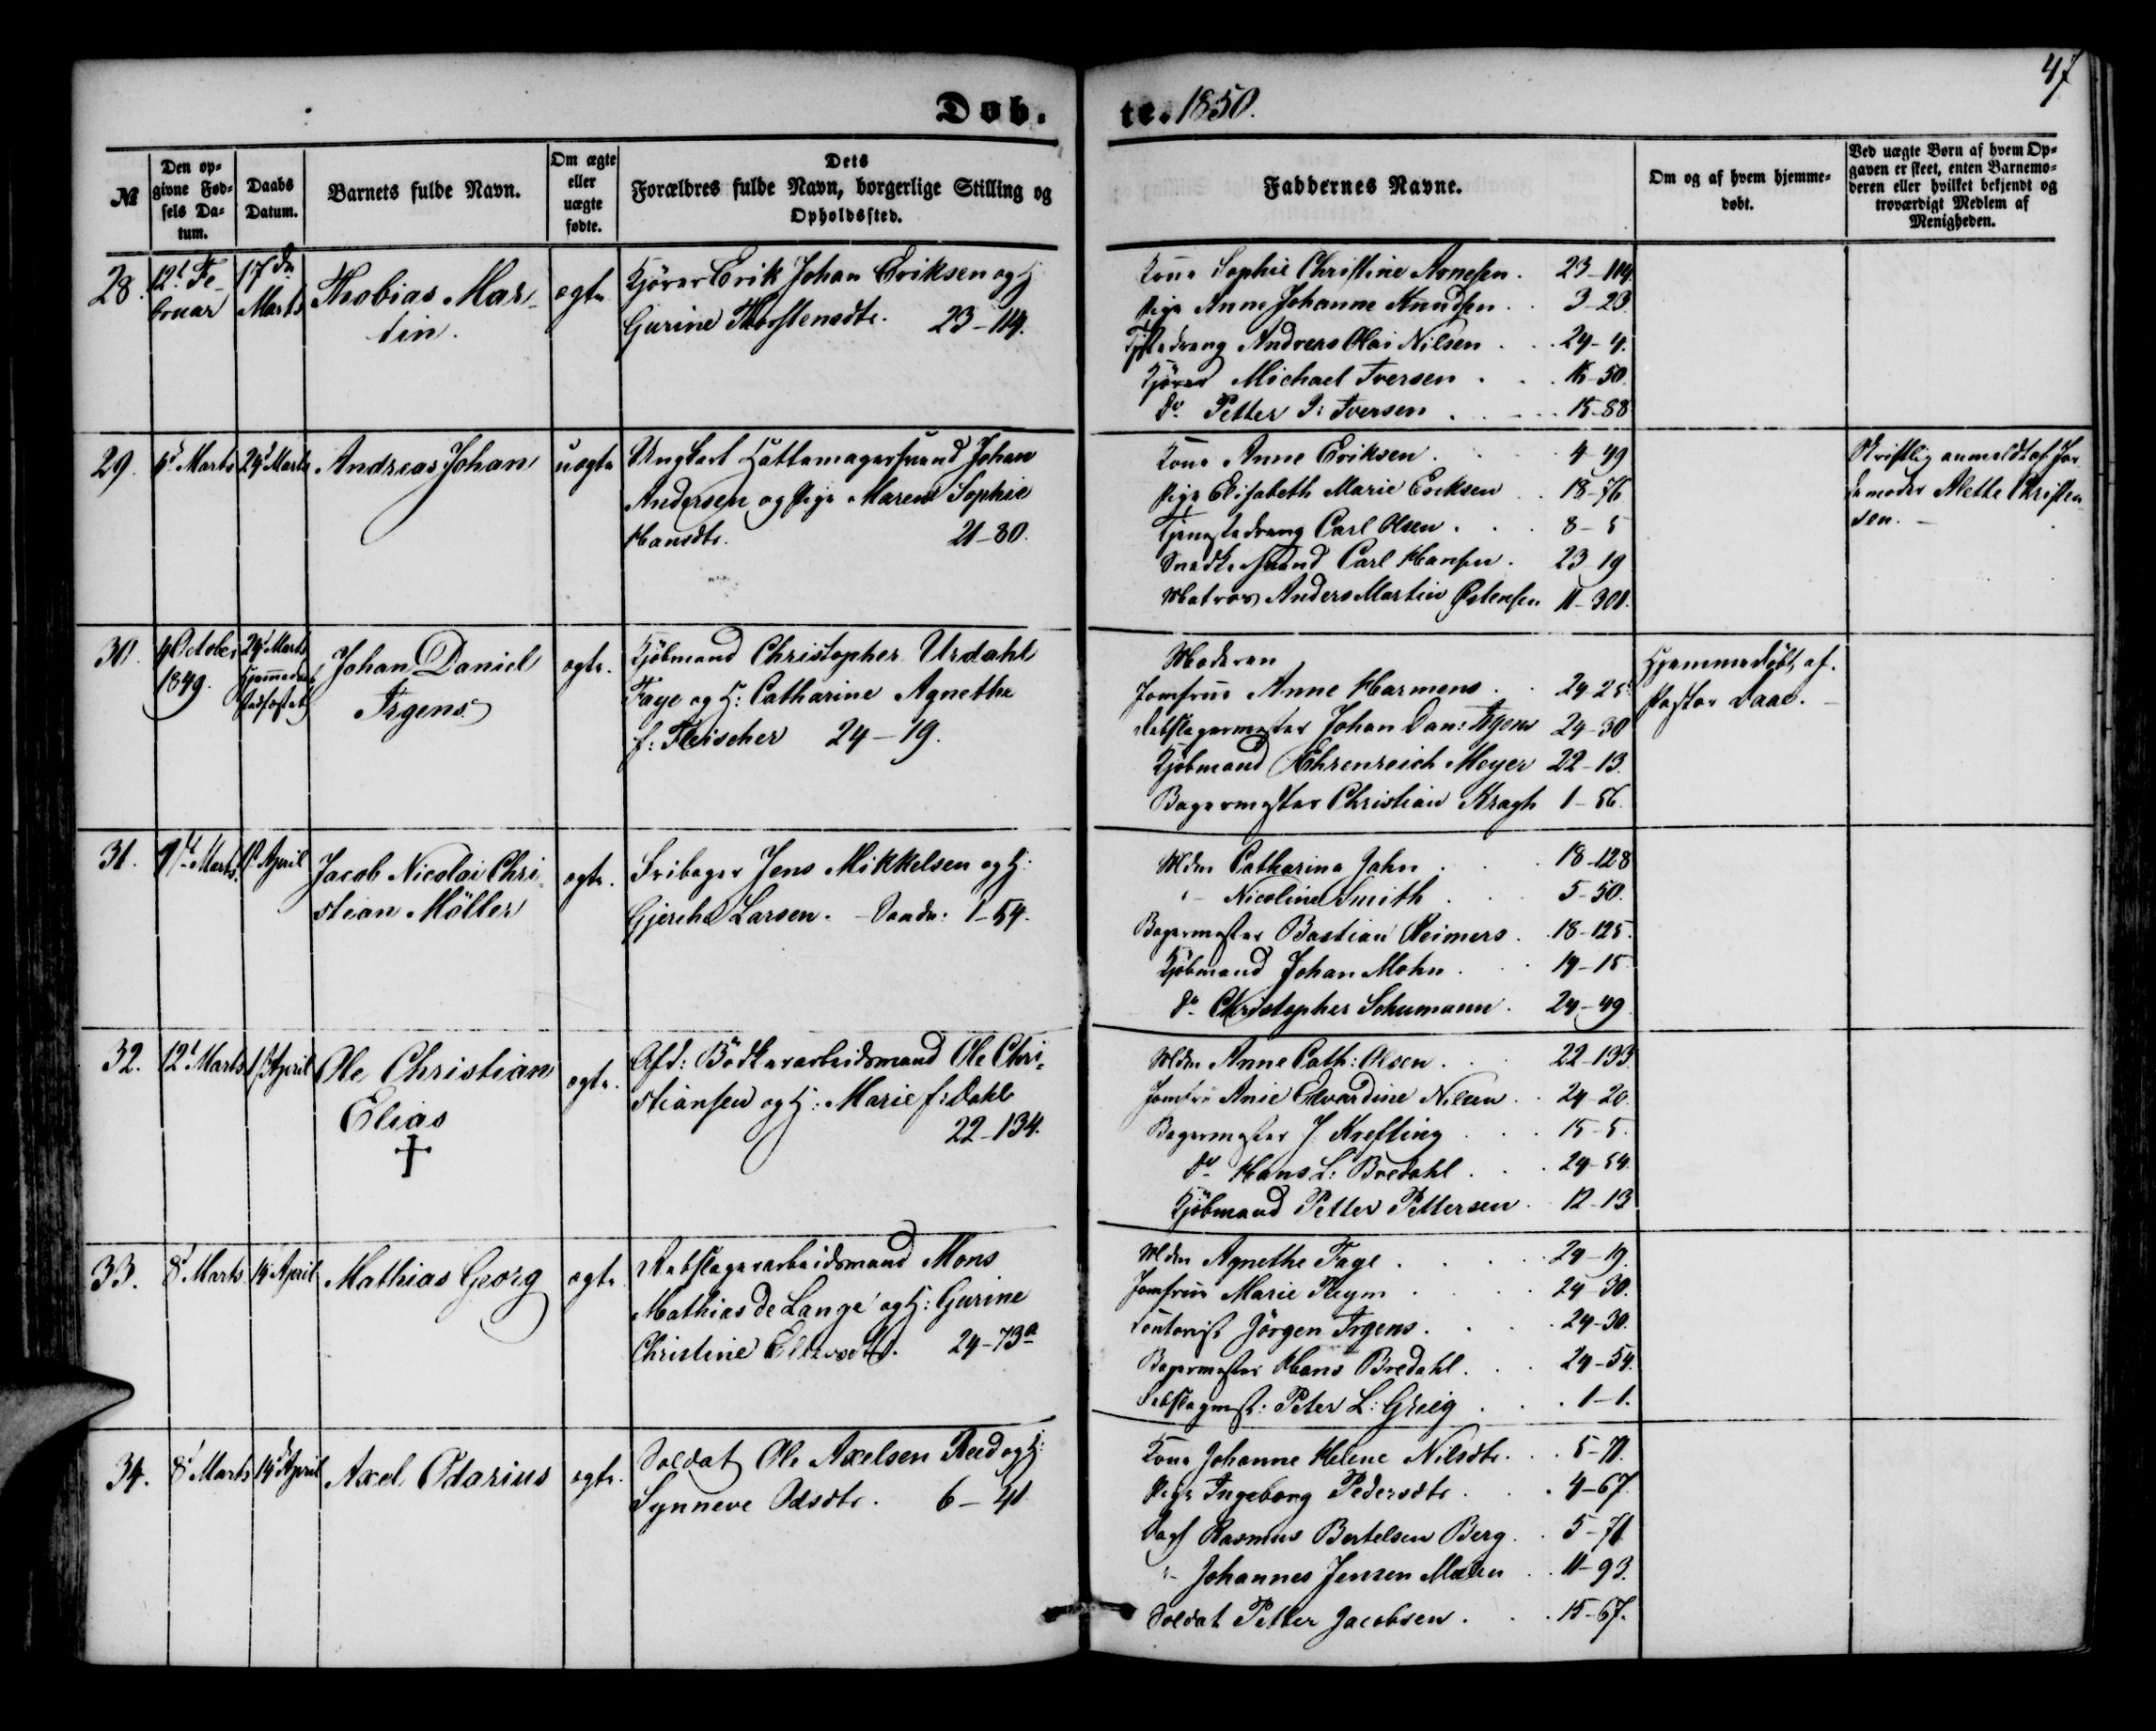 47
Døb.
te. 1850.
№
Den op-
givne Fød-
sels Da-
tum.
Daabs
Datum.
Barnets fulde Navn.
Om ægte
eller
uægte
fødte.
Dets
Forældres fulde Navn, borgerlige Stilling og
Opholdssted.
Faddernes Navne.
Om og af hvem hjemme-
døbt.
Ved uægte Børn af hvem Op-
gaven er skeet, enten Barnemo-
deren eller hvilket bekjendt og
troværdigt Medlem af
Menigheden.
28.
12t Fe-
bruar
17de
Marts
Thobias Mar-
tin.
ægte
Kjører Erik Johan Eriksen og H
Gurine Thorstensdtr. 23-114.
Kone Sophie Christine Arnesen. 23-114.
Pige Anne Johanne Knudsen. 3-23.
Tjstedreng Andreas Olai Nilsen 24-4.
Kjører Michael Iversen. 16-50.
Do Petter I: Iversen 15-88
29.
6t Marts
24t Marts
Andreas Johan
uægte
Ungkarl Hattemagersvend Johan
Andersen og Pige Maren Sophie
Hansdtr. 21-80.
Kone Anne Eriksen. 4-49
Pige Elisabeth Marie Eriksen 18-76
Tjenestedreng Carl Olsen. 8-5
Snedkersvend Carl Hansen. 23-19
Matros Anders Martin Østensen 11-301.
Skriftlig anmeldt af Jor-
demoder Alette Christen-
sen.
30.
4 October
1849.
24t Marts
Hjemmedaab
Stadfæstet
Johan Daniel
Irgens
ægte.
Kjøbmand Christopher Urdahl
Faye og H: Catharine Agnethe
f: Fleischer 24-19.
Moderen
Jomfrue Anne Harmens. 24-25
Rebslagermester Johan Dan: Irgens 24-30
Kjøbmand Ehrenreich Meyer 22-13.
Bagermester Christian Kragh 1-56.
Hjemmedøbt af
Pastor Daae.
31.
Marts.
April
Jacob Nicolai Chri-
stian Möller
ægte.
Fribager Jens Mikkelsen og H:
Larsen. 1-54.
Mdm Catharina Jahn. 18-128
" Nicoline Smith 5-50.
Bagermester Bastian Reimers. 18-125.
Kjøbmand Johan Mohn. 19-15
Do Christopher Schumann. 24-49
32.
12t Marts
April
Ole Christian
Elias
†
ægte.
Afd: Bødkerarbeidsmand Ole Chri-
stiansen og H: Marie f: Dahl
22-134.
Mdm Anne Cath: Olsen. 22-133
Jomfru Anie Edvardine Nilsen. 24-20.
Bagermester J. Krefting 15-5.
Do Hans L: Bredahl. 24-54.
Kjøbmand Petter Pettersen. 12-13
33.
8t Marts
14t April
Mathias Georg
ægte
Rebslagerarbeidsmand Mons
Mathias de Lange og H: Gurine
Christine 24-73a
Mdm Agnethe Faye. 24-19.
Jomfrue Marie Pleym 24-30.
Contorist Jörgen Irgens. 24-30.
Bagermester Hans Bredahl. 24-54.
Rebslagmst: Peter L: Grieg 1-1.
34.
8t Marts
14t April
Axel Odarius
ægte.
Soldat Ole Axelsen Reed og H:
Synneve Odsdtr. 6-41
Kone Johanne Helene Nilsdtr. 5-71.
Pige Ingeborg Pedersdtr. 4-67.
Rasmus Bertelsen Berg. 5-71
"- Johannes Jensen 11-93.
Soldat Petter Jacobsen. 15-67.